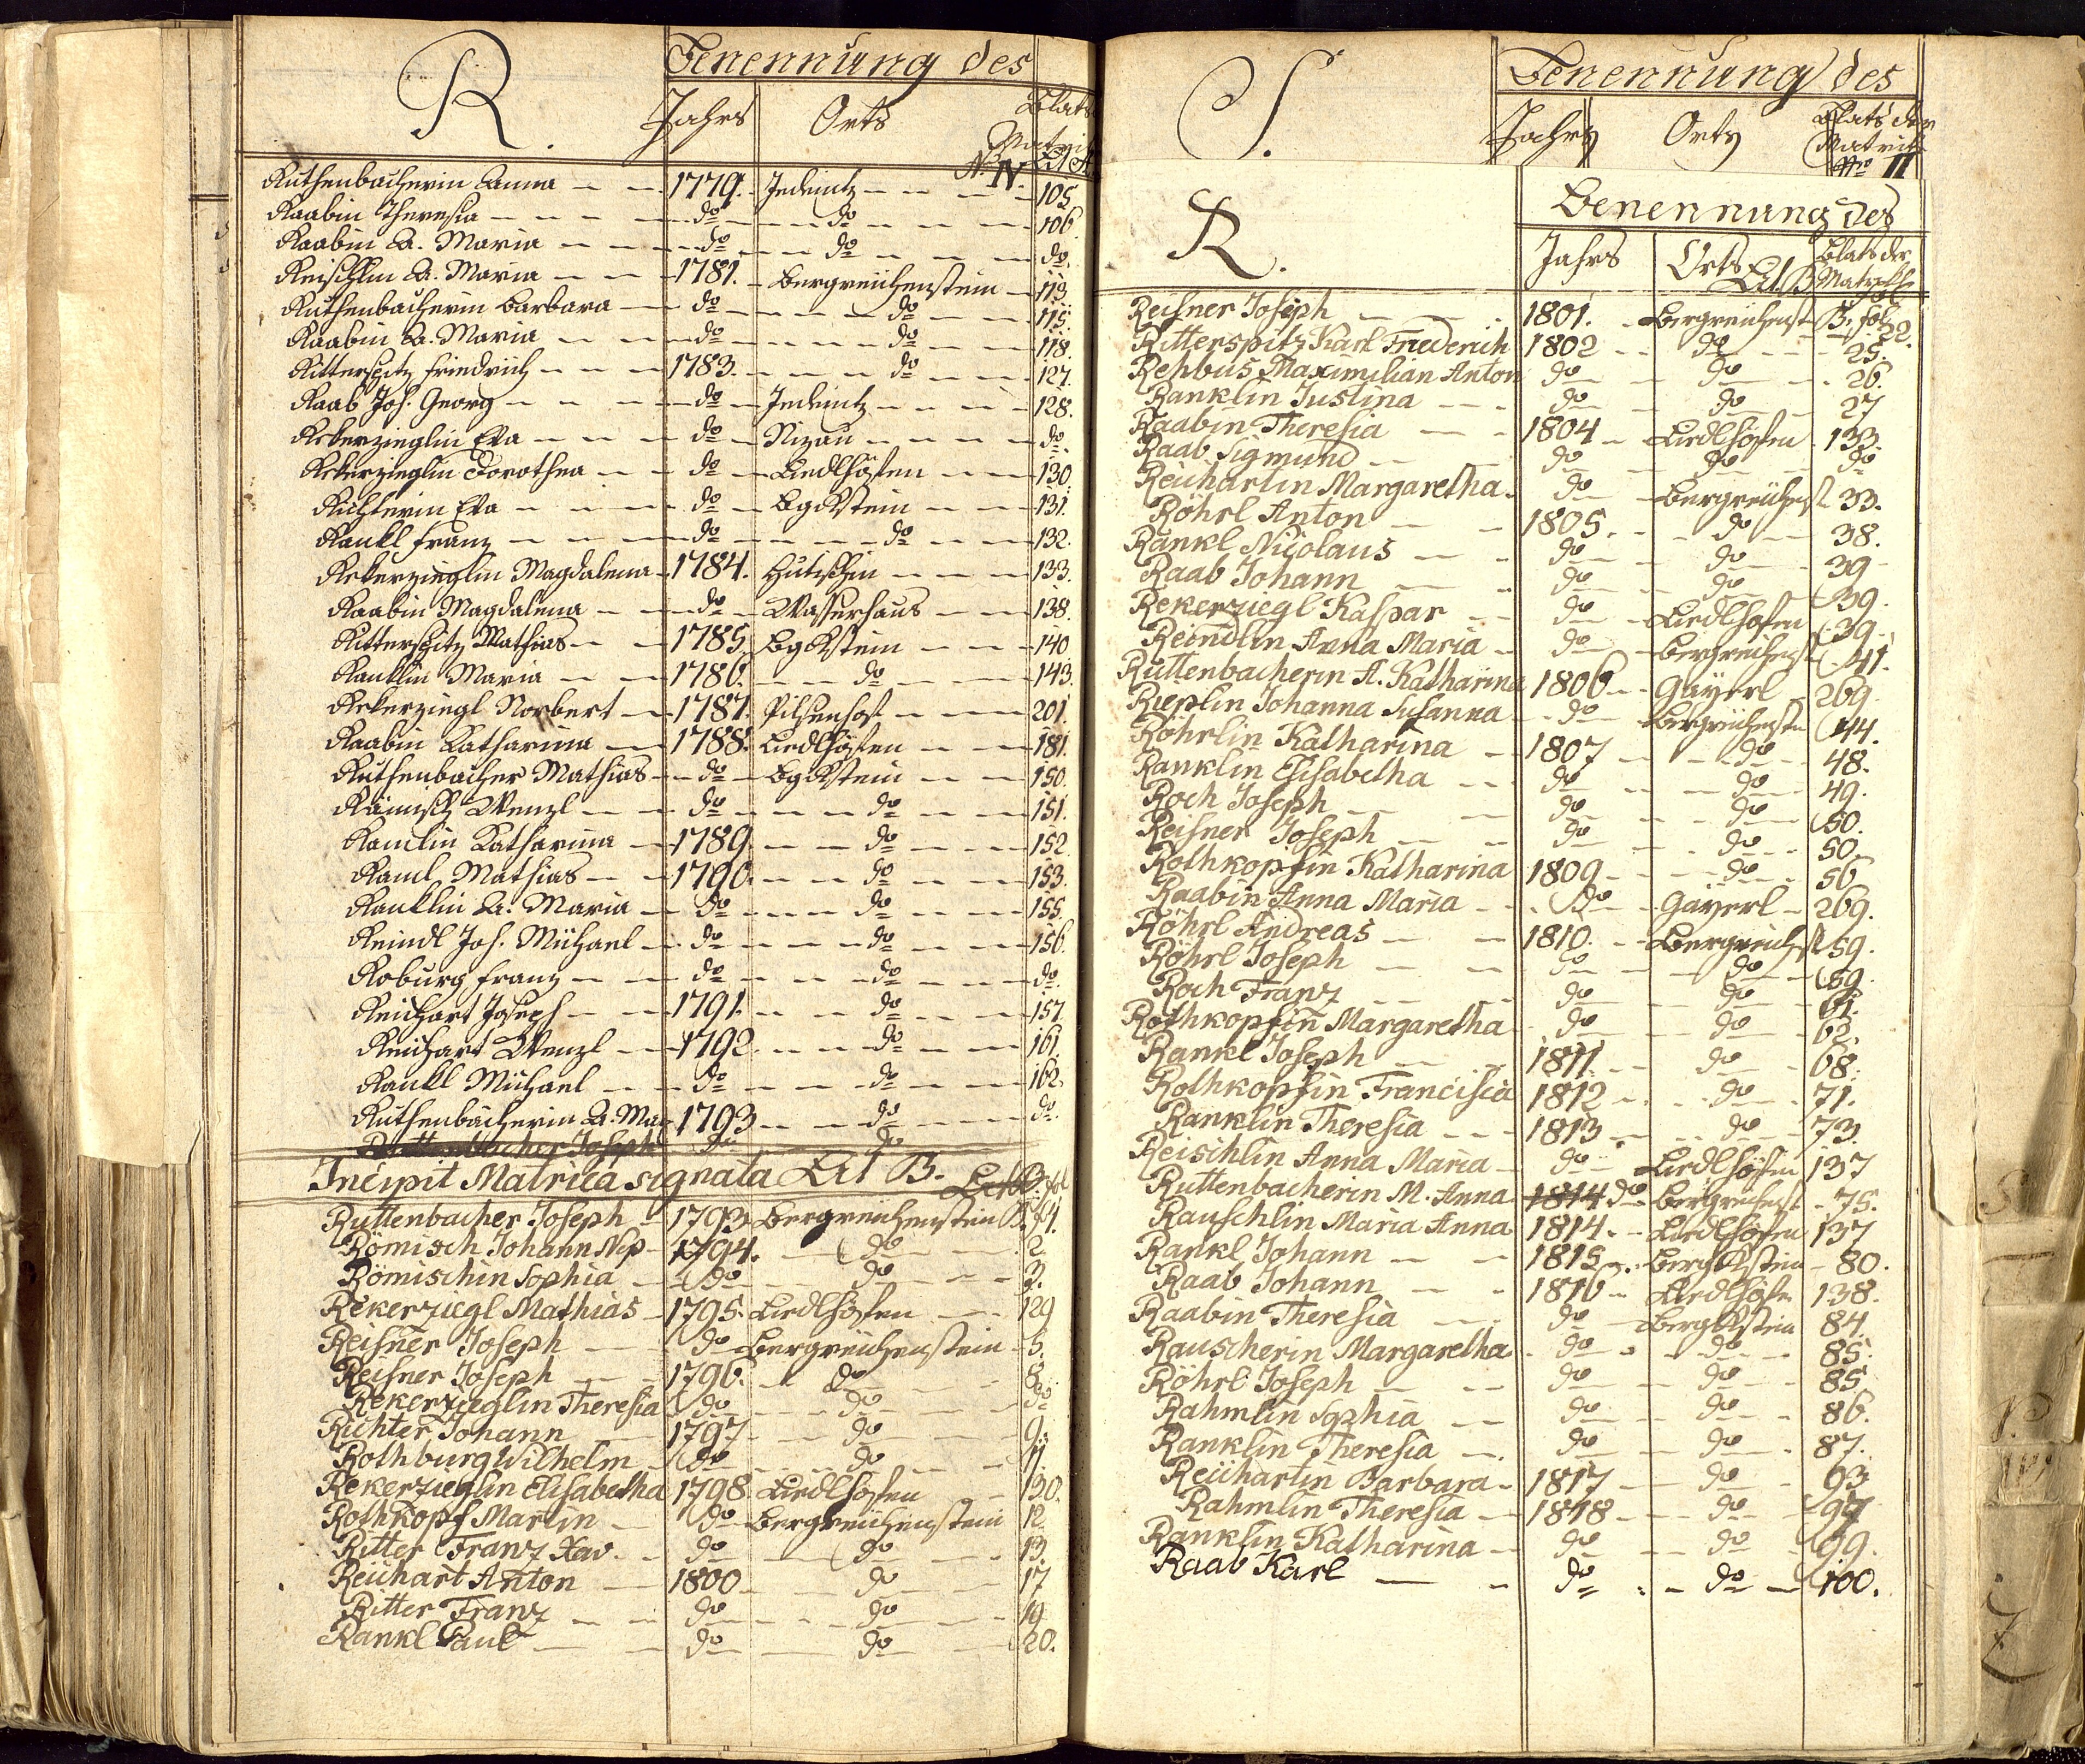 R.
Benennung des
Jahrs Orts Blats
Matrik
N. IV. Lit A.
Ruthenbacherin Anna 1779. Jedeintz 105.
Raabin Theresia do do 106.
Raabin A. Maria do do do.
Reischlin A. Maria 1781. Bergreichenstein 113.
Ruthenbacherin Barbara do do 115.
Raabin A. Maria do do 118.
Ritterspitz Friedrich 1783. do 127.
Raab Joh. Georg do Jedeintz 128.
Rekerzieglin Eva do Nizau do.
Rekerzieglin Dorothea do Liedlhöfen 130.
Richterin Eva do BgRstein 131.
Rankl Franz do do 132.
Rekerzieglin Magdalena 1784. 133.
Raabin Magdalena do Wasserhaus 138.
Ritterspitz Mathias 1785. BgRstein 140.
Ranklin Maria 1786. do 143.
Rekerziegl Norbert 1787. 201.
Raabin Katharina 1788. Liedlhöfen 181.
Ruthenbacher Mathias do BgRstein 150.
Rämisch Wenzl do do 151.
Ramlin Katharina 1789. do 152.
Raml Mathias 1790. do 153.
Ranklin A. Maria do do 155.
Reindl Joh. Michael do do 156.
Roburg Franz do do do.
Reichart Joseph 1791. do 157.
Reichart Wenzl 1792. do 161.
Rankl Michael do do 162.
Ruthenbacherin A. Mar 1793 do do.
Ruttenbacher Joseph do do
Incipit Matrica signata Lit B. Lit B. fol
Ruttenbacher Joseph 1793 Bergreichenstein B. 1.
Römisch Johann Nep 1794. do 2.
Römischin Sophia do do 3.
Rekerziegl Mathias 1795. Liedlhöfen 129
Reisner Joseph do Bergreichenstein 5.
Reisner Joseph 1796. do 8.
Rekerzieglin Theresia do do do
Richter Johann 1797 do 9.
Rothburg Wilhelm do do 11.
Rekerzieglin Elisabetha 1798. Liedlhöfen 130.
Rothkopf Martin do Bergreichenstein 12
Ritter Franz Xav. do do 13.
Reichart Anton 1800 do 17
Ritter Franz do do 19
Rankl Paul do do 20.
S.
Benennung des
Jahrs Orts Blats der
Matrik
No II
R.
Benennung des
Jahrs Orts Blats der
Lit B Matrik
Reisner Joseph 1801. Bergreichenst B. fol 22.
Ritterspitz Karl Friederich 1802 do 25.
Rehbus Maximilian Anton do do 26.
Ranklin Justina do do 27
Raabin Theresia 1804 Liedlhöfen 133.
Raab Sigmund do do do
Reicharlin Margaretha do Bergreichenst 33.
Röhrl Anton 1805. do 38.
Rankl Nicolaus do do 39
Raab Johann do do 39.
Rekerziegl Kaspar do Liedlhöfen 39
Reindlin Anna Maria do Bergreichenst 41.
Ruttenbacherin A. Katharina 1806 Gäyerl 269.
Rieplin Johanna Susanna do Bergreichenstn 44.
Röhrlin Katharina 1807 do 48.
Ranklin Elisabetha do do 49.
Roch Joseph do do 50.
Reisner Joseph do do 50.
Rothkopfin Katharina 1809 do 56
Raabin Anna Maria do Gäyerl 269.
Röhrl Andreas 1810. Bergreichst 59.
Röhrl Joseph do do 59.
Roch Franz do do 61.
Rothkopfin Margaretha do do 62.
Rankl Joseph 1811. do 68.
Rothkopfin Francisca 1812 do 71.
Ranklin Theresia 1813 do 73.
Reischlin Anna Maria do Liedlhöfen 137
Ruttenbacherin M. Anna 1814 do Bergreichenst 75.
Rauschlin Maria Anna 1814. Liedlhöfen 137
Rankl Johann 1815. BergRstein 80.
Raab Johann 1816 Liedlhöfn 138.
Raabin Theresia do BergRstein 84.
Rauscherin Margaretha do do 85.
Röhrl Joseph do do 85
Rahmlin Sophia do do 86.
Ranklin Theresia do do 87.
Reichartin Barbara 1817 do 93
Rahmlin Theresia 1818 do 97
Ranklin Katharina do do 99.
Raab Karl do do 100.